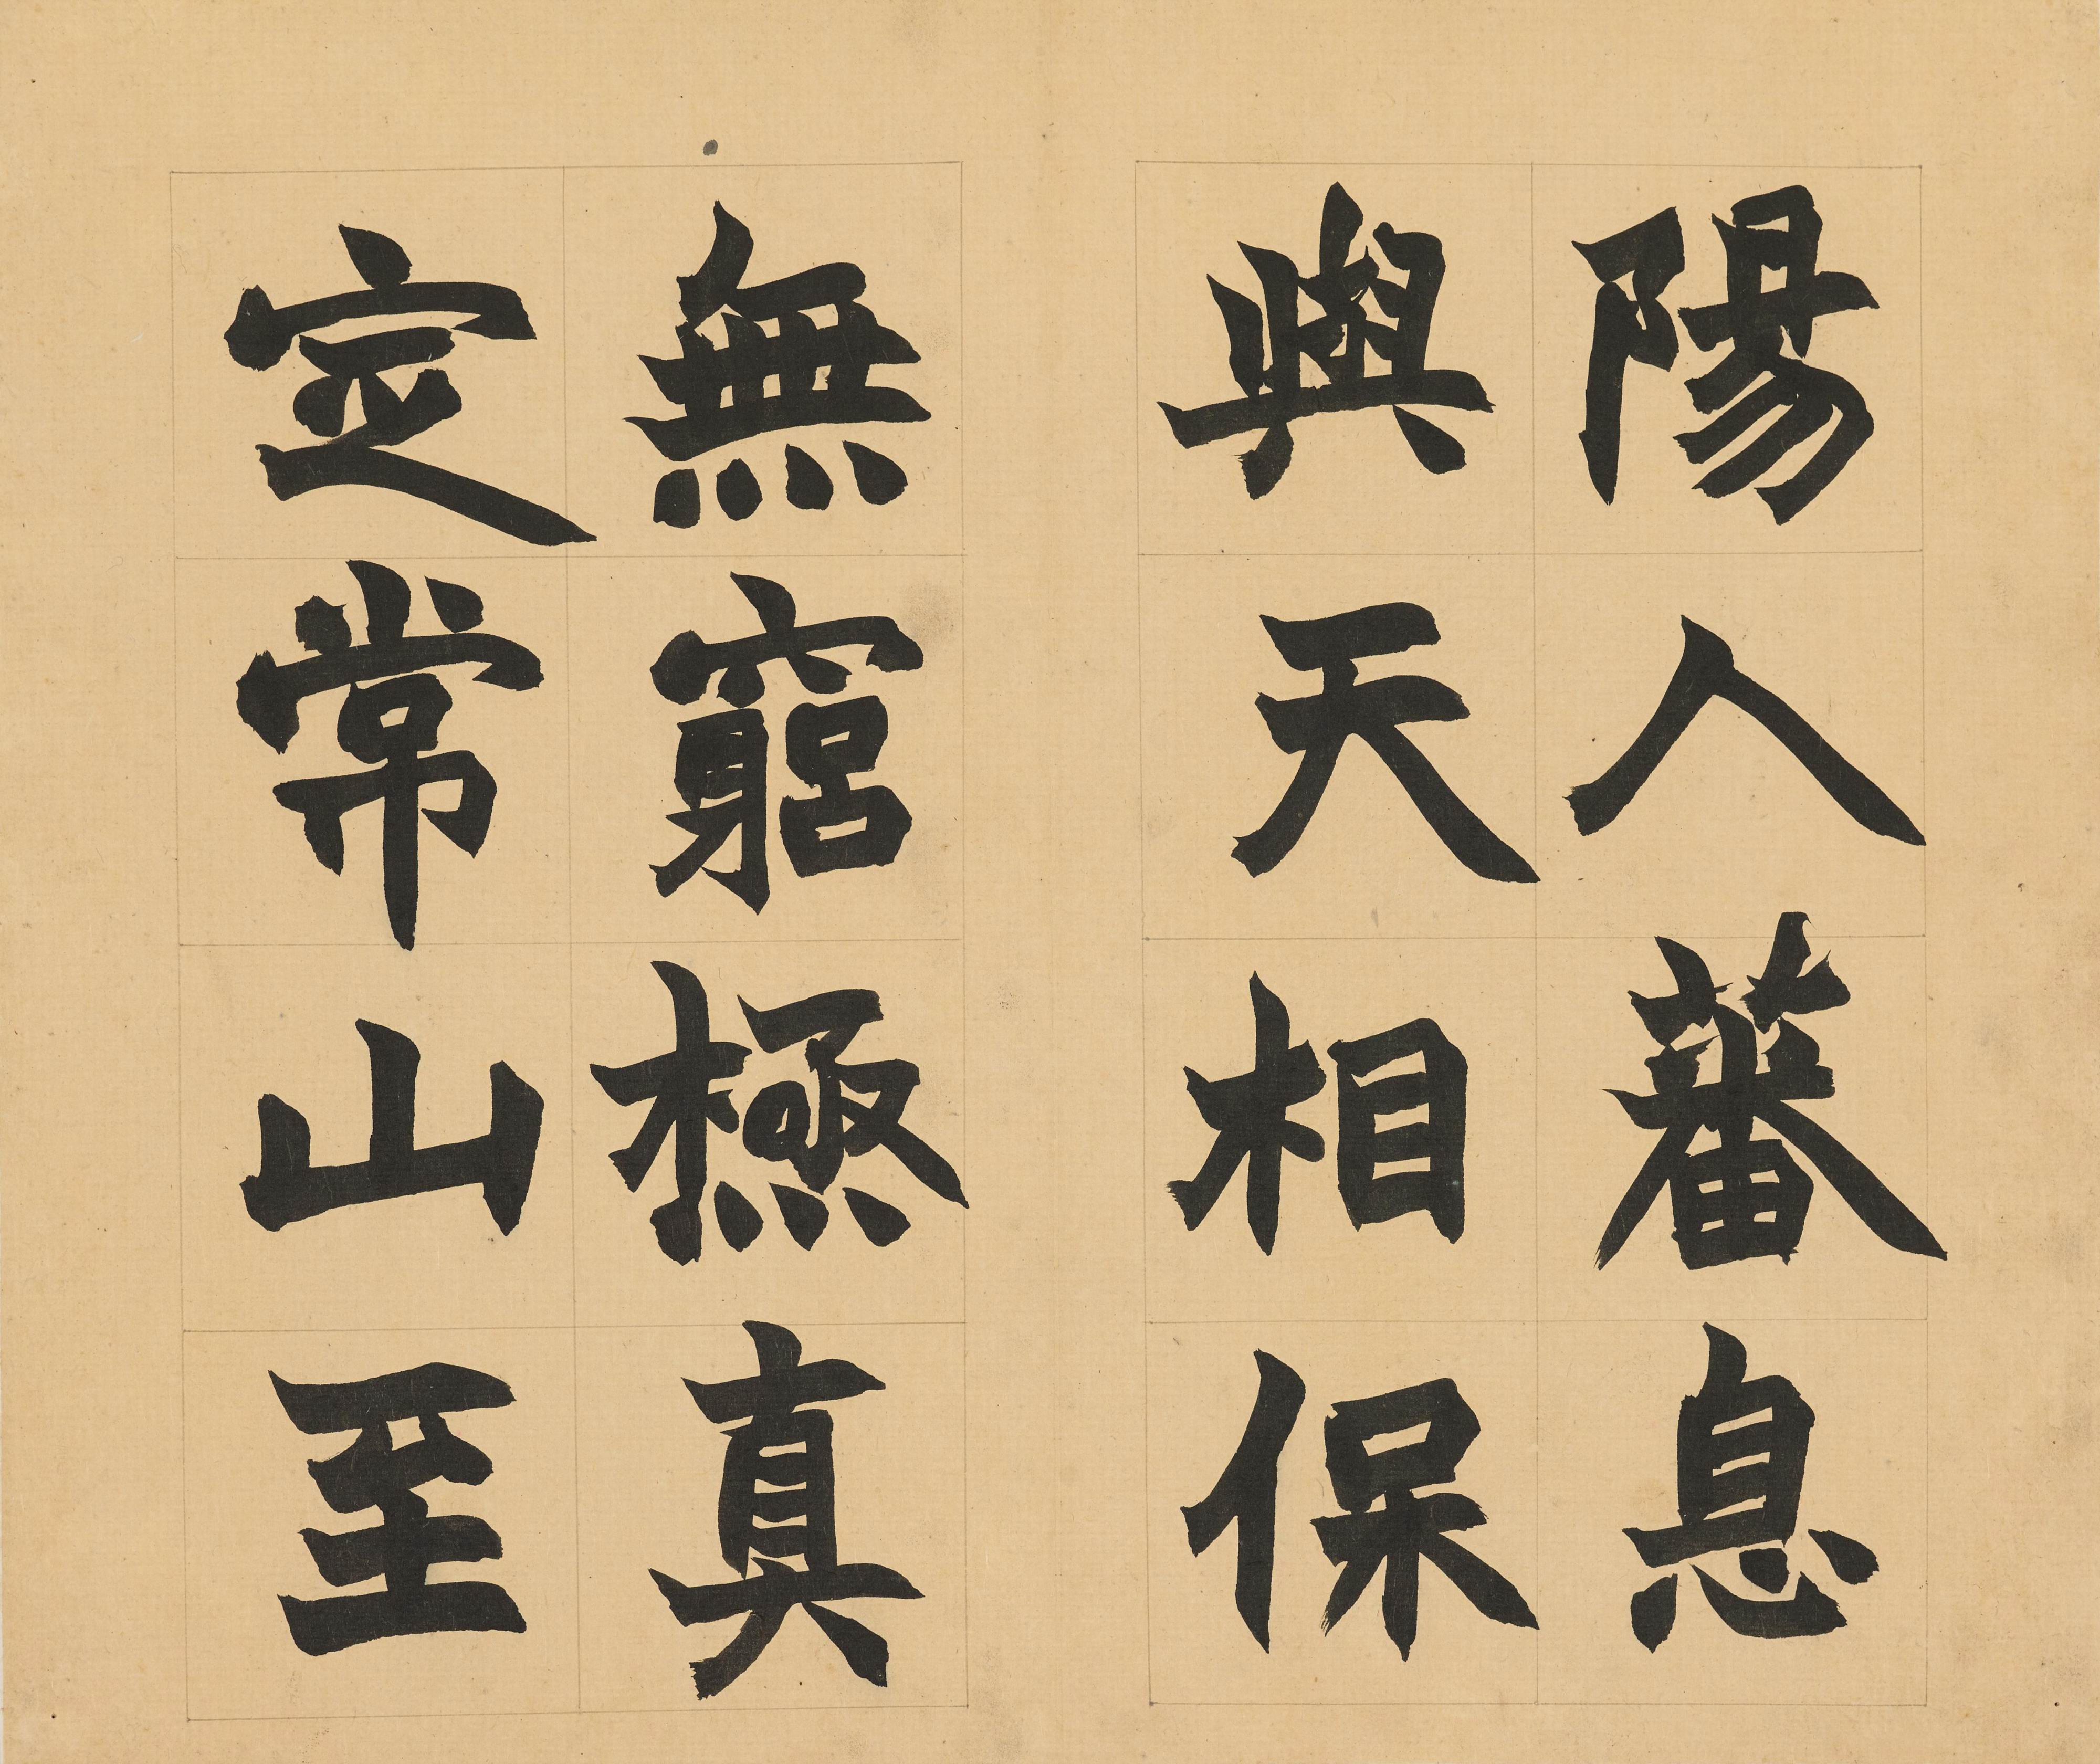 陽人蕃息
與天相保
無窮極真
定常山至